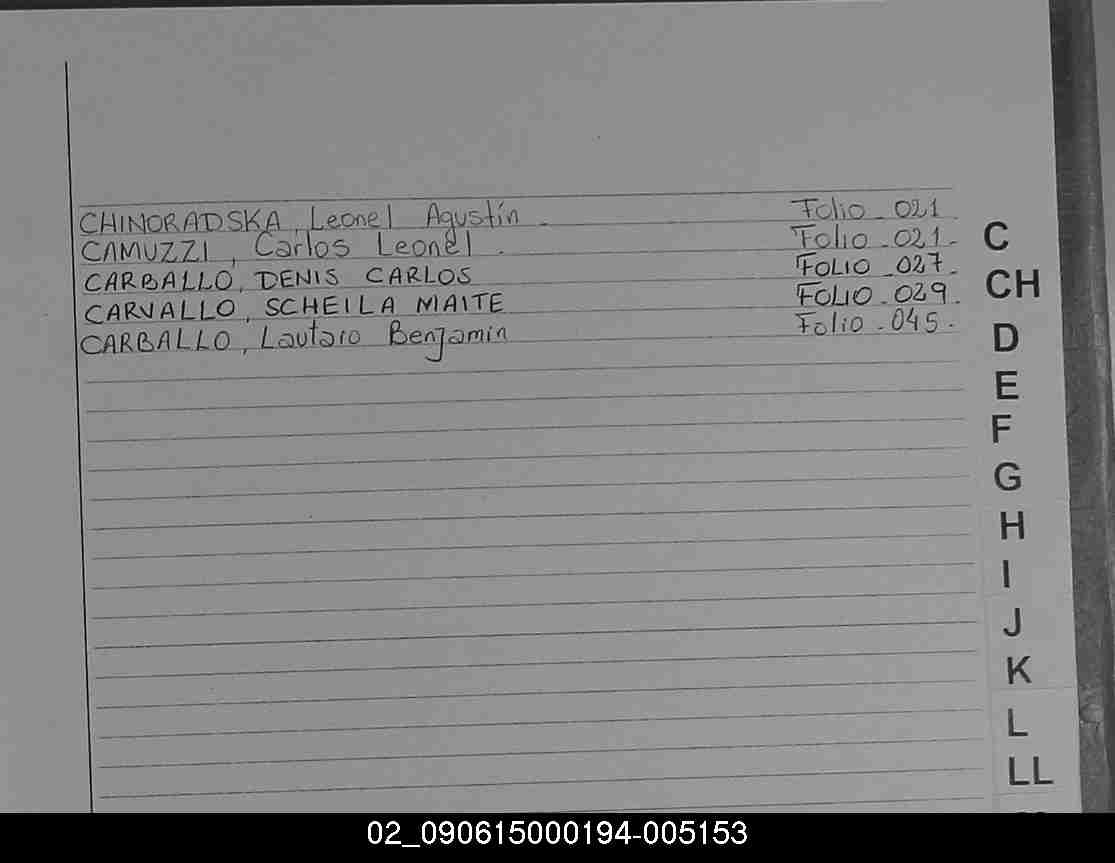 CHINORADSKA, Leonel Agustín - Folio - 021
CAMUZZI, Carlos Leonel. Folio - 021-
CARBALLO, DENIS CARLOS FOLIO - 027.
CARVALLO, SCHEILA MAITE FOLIO - 029.
CARBALLO, Lautaro Benjamin Folio - 045.
C
CH
D
E
F
G
H
I
J
K
L
LL
02_090615000194-005153